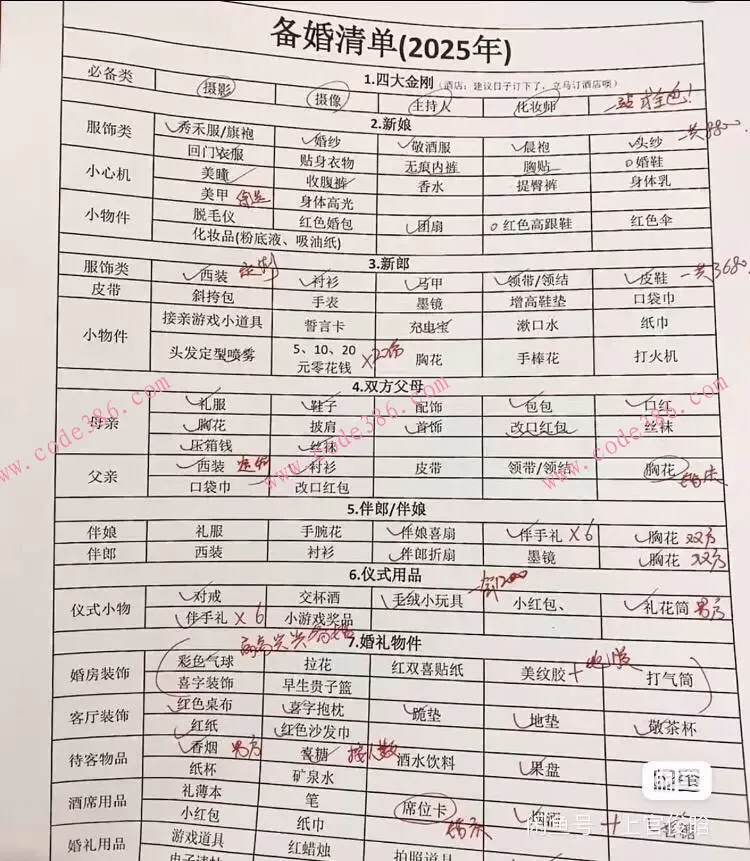 备婚清单(2025年)
必备类 1.四大金刚(酒店：建议日子订下了，立马订酒店噢)
摄影 摄像 主持人 化妆师
2.新娘
服饰类 秀禾服/旗袍 婚纱 敬酒服 晨袍 头纱 一共8800
回门衣服 贴身衣物 无痕内裤 胸贴 婚鞋
小心机 美瞳 收腹裤 香水 提臀裤 身体乳
美甲 身体高光
小物件 脱毛仪 红色婚包 团扇 红色高跟鞋 红色伞
化妆品(粉底液、吸油纸)
3.新郎
服饰类 西装 定制 衬衫 马甲 领带/领结 皮鞋 一共3680
皮带 斜挎包 手表 墨镜 增高鞋垫 口袋巾
小物件 接亲游戏小道具 誓言卡 充电宝 漱口水 纸巾
头发定型喷雾 5、10、20元零花钱 胸花 手棒花 打火机
4.双方父母
母亲 礼服 鞋子 配饰 包包 口红
胸花 披肩 首饰 改口红包 丝袜
压箱钱 丝袜
父亲 西装 定制 衬衫 皮带 领带/领结 胸花
口袋巾 改口红包
5.伴郎/伴娘
伴娘 礼服 手腕花 伴娘喜扇 伴手礼 X6 胸花 双方
伴郎 西装 衬衫 伴郎折扇 墨镜 胸花 双方
6.仪式用品
仪式小物 对戒 交杯酒 毛绒小玩具 小红包、 礼花筒 男方
伴手礼 X6 小游戏奖品
7.婚礼物件
婚房装饰 彩色气球 拉花 红双喜贴纸 美纹胶 打气筒
喜字装饰 早生贵子篮
客厅装饰 红色桌布 喜字抱枕 跪垫 地垫 敬茶杯
红纸 红色沙发巾
待客物品 香烟 男方 喜糖 按人数 酒水饮料 果盘
纸杯 矿泉水
酒席用品 礼薄本 笔 席位卡
小红包 纸巾
婚礼用品 游戏道具 红蜡烛 拍照道具
www.code386.com
www.code386.com
www.code386.com
闲鱼